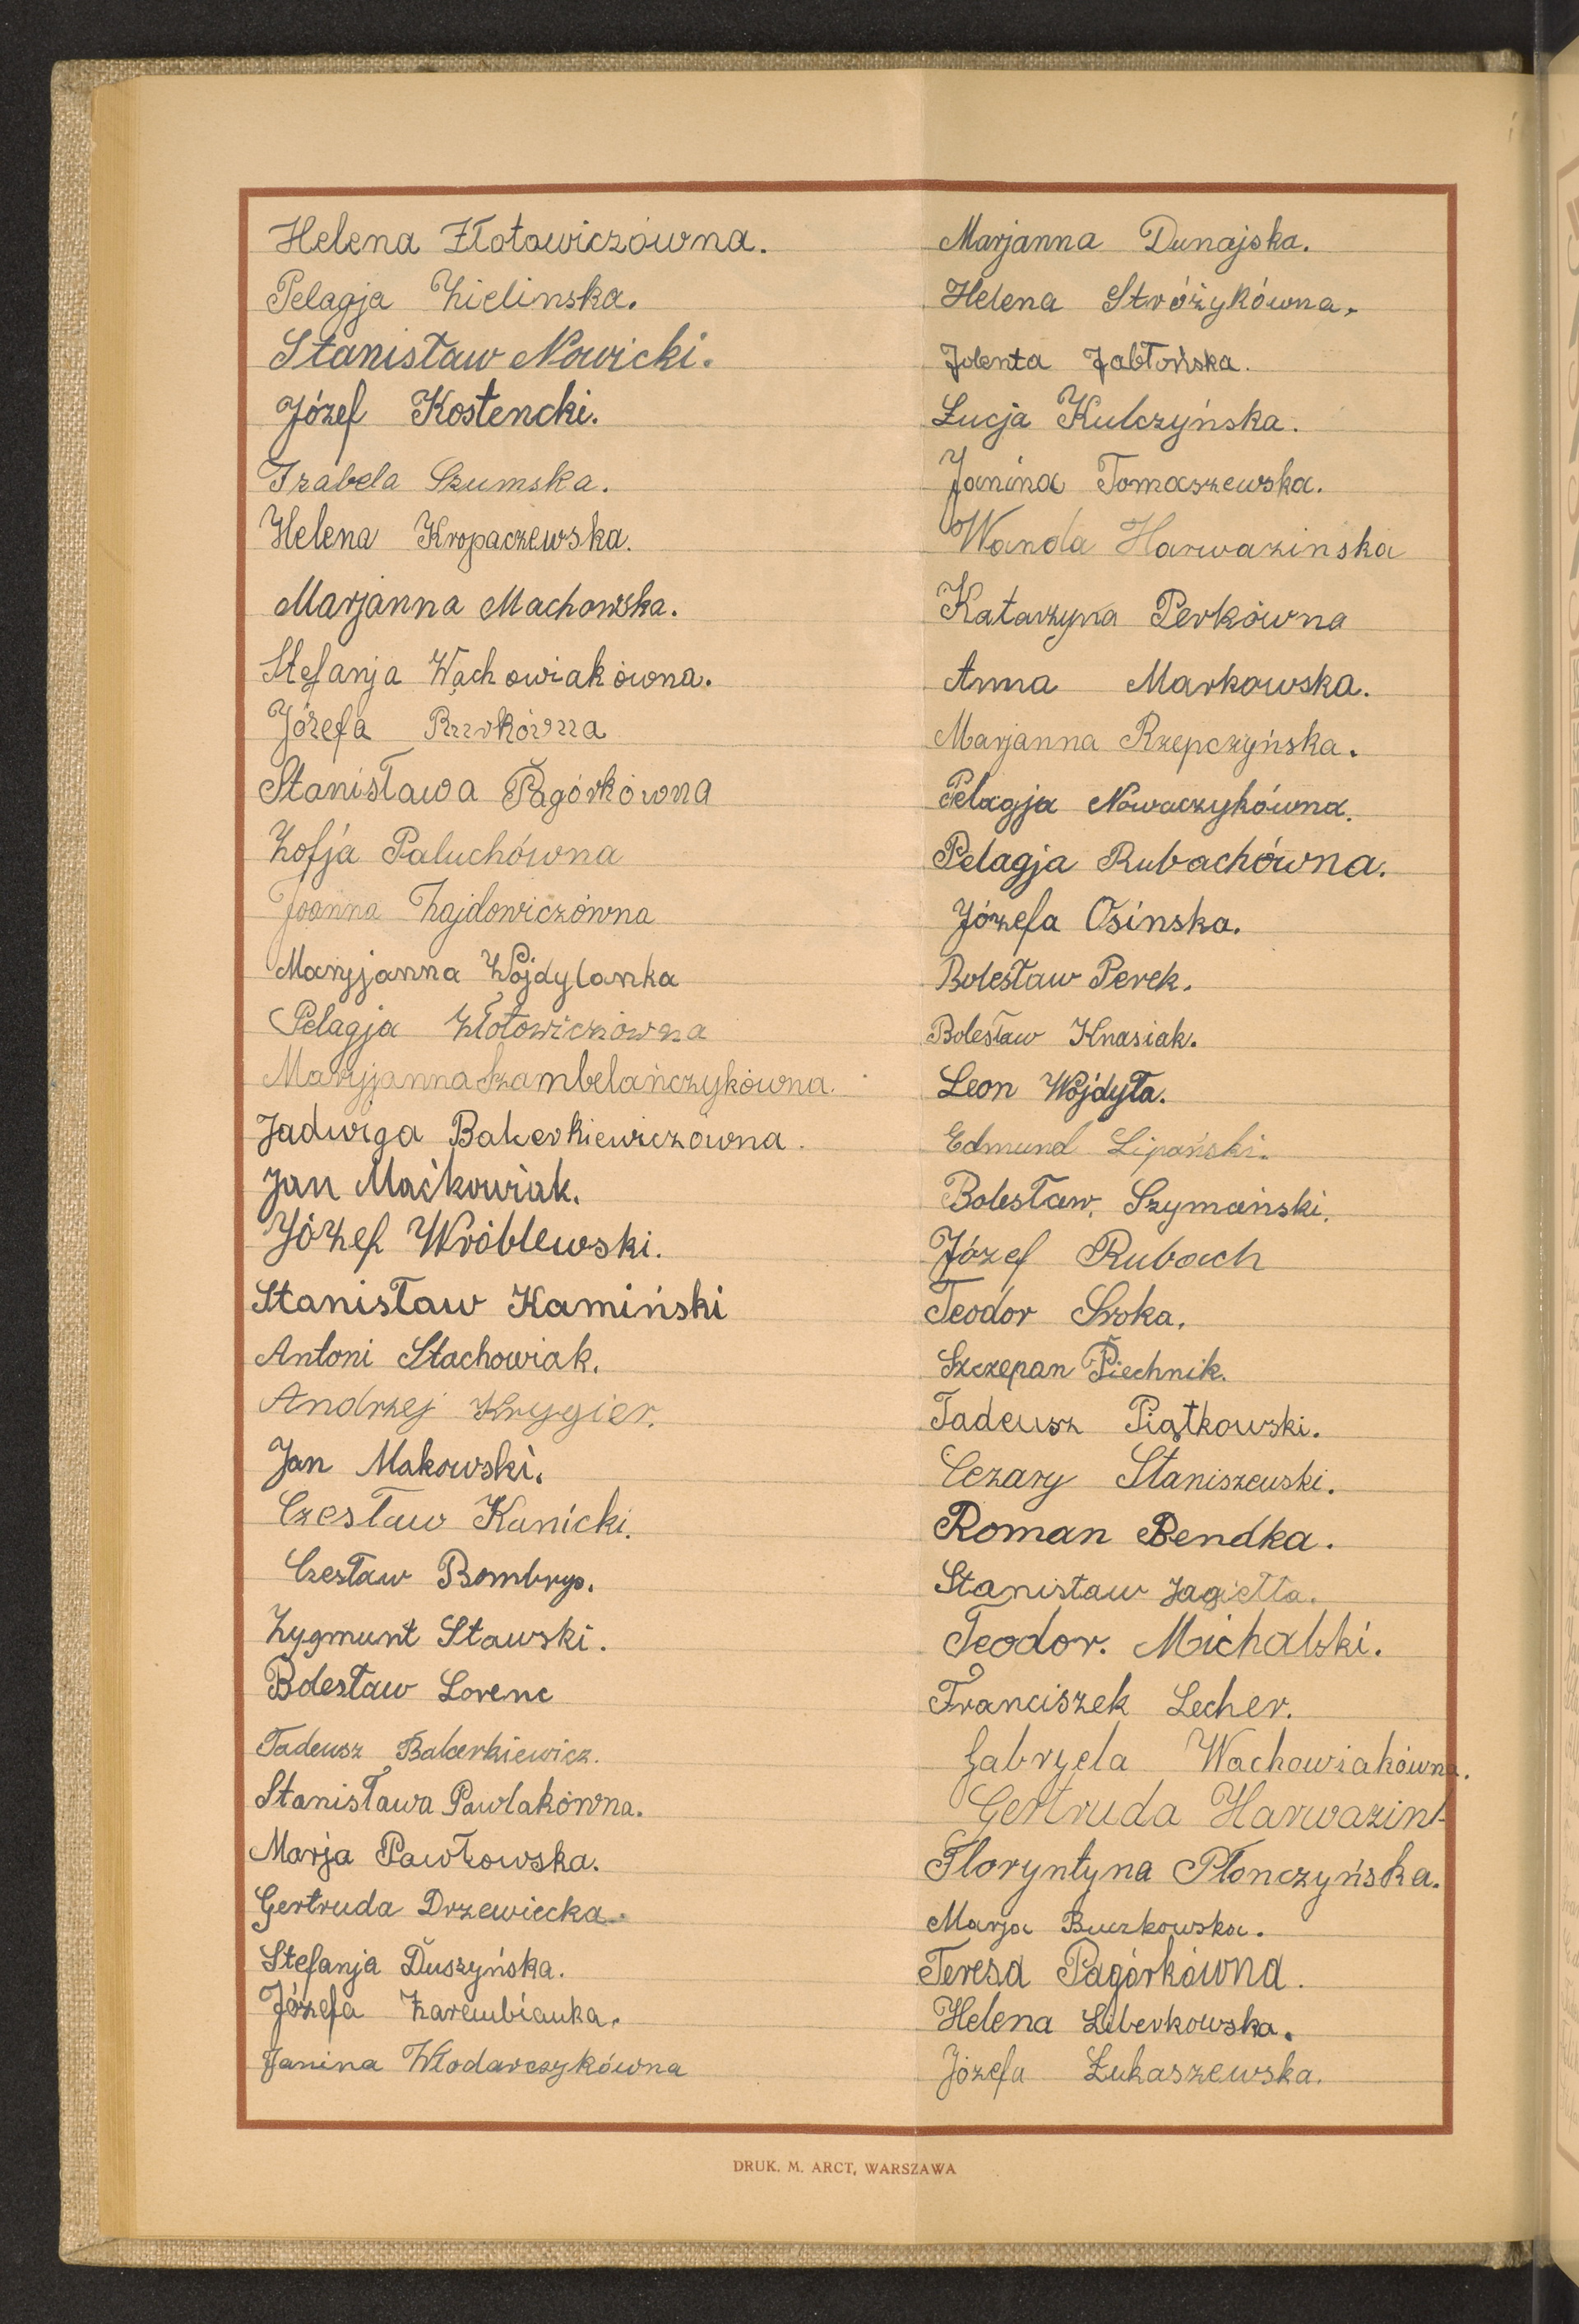 Helena Złotowiczówna.
Pelagja Zielinska.
Stanisław Nowicki.
Józef Kostencki.
Izabela Szumska.
Helena Kropaczewska.
Marjanna Machowska.
Stefanja Wachowiakówna.
Józefa
Stanisława Pagórkówna
Zofja Paluchówna
Joanna Zajdowiczówna
Maryjanna Wojdylanka
Pelagja Złotowiczówna
Maryjanna Szambelańczykówna.
Jadwiga Bakerkiewiczówna.
Jan Maćkowiak.
Józef Wróblewski.
Stanisław Kamiński
Antoni Stachowiak.
Andrzej Krygier.
Jan Makowski.
Czesław Kanicki.
Czesław Bombrys.
Zygmunt Stawski.
Bolesław Lorenc
Tadeusz Bakerkiewicz.
Stanisława Pawlakówna.
Marja Pawłowska.
Gertruda Drzewiecka.
Stefanja Duszyńska.
Józefa Zarembianka.
Janina Włodarczykówna
Marjanna Dunajska.
Helena Stróżykówna.
Jolenta Jabłońska.
Łucja Kulczyńska.
Janina Tomaszewska.
Wanda Harwazinska
Katarzyna Perkówna
Anna Markowska.
Marjanna Rzepczyńska.
Pelagja Nowaczykówna.
Pelagja Rubachówna.
Józefa Osinska.
Bolesław Perek.
Bolesław Knasiak.
Leon Wojdyła.
Edmund Lipański.
Bolesław. Szymański.
Józef Rubach
Teodor Sroka.
Szczepan Piechnik.
Tadeusz Piątkowski.
Cezary Staniszewski.
Roman Bendka.
Stanisław Jagiełła.
Teodor. Michalski.
Franciszek Lecher.
Gabryela Wachowiakówna.
Gertruda Harwazin
Floryntyna Płonczyńska.
Marja Buczkowska.
Teresa Pagórkówna.
Helena Liberkowska.
Józefa Łukaszewska.
DRUK. M. ARCT, WARSZAWA